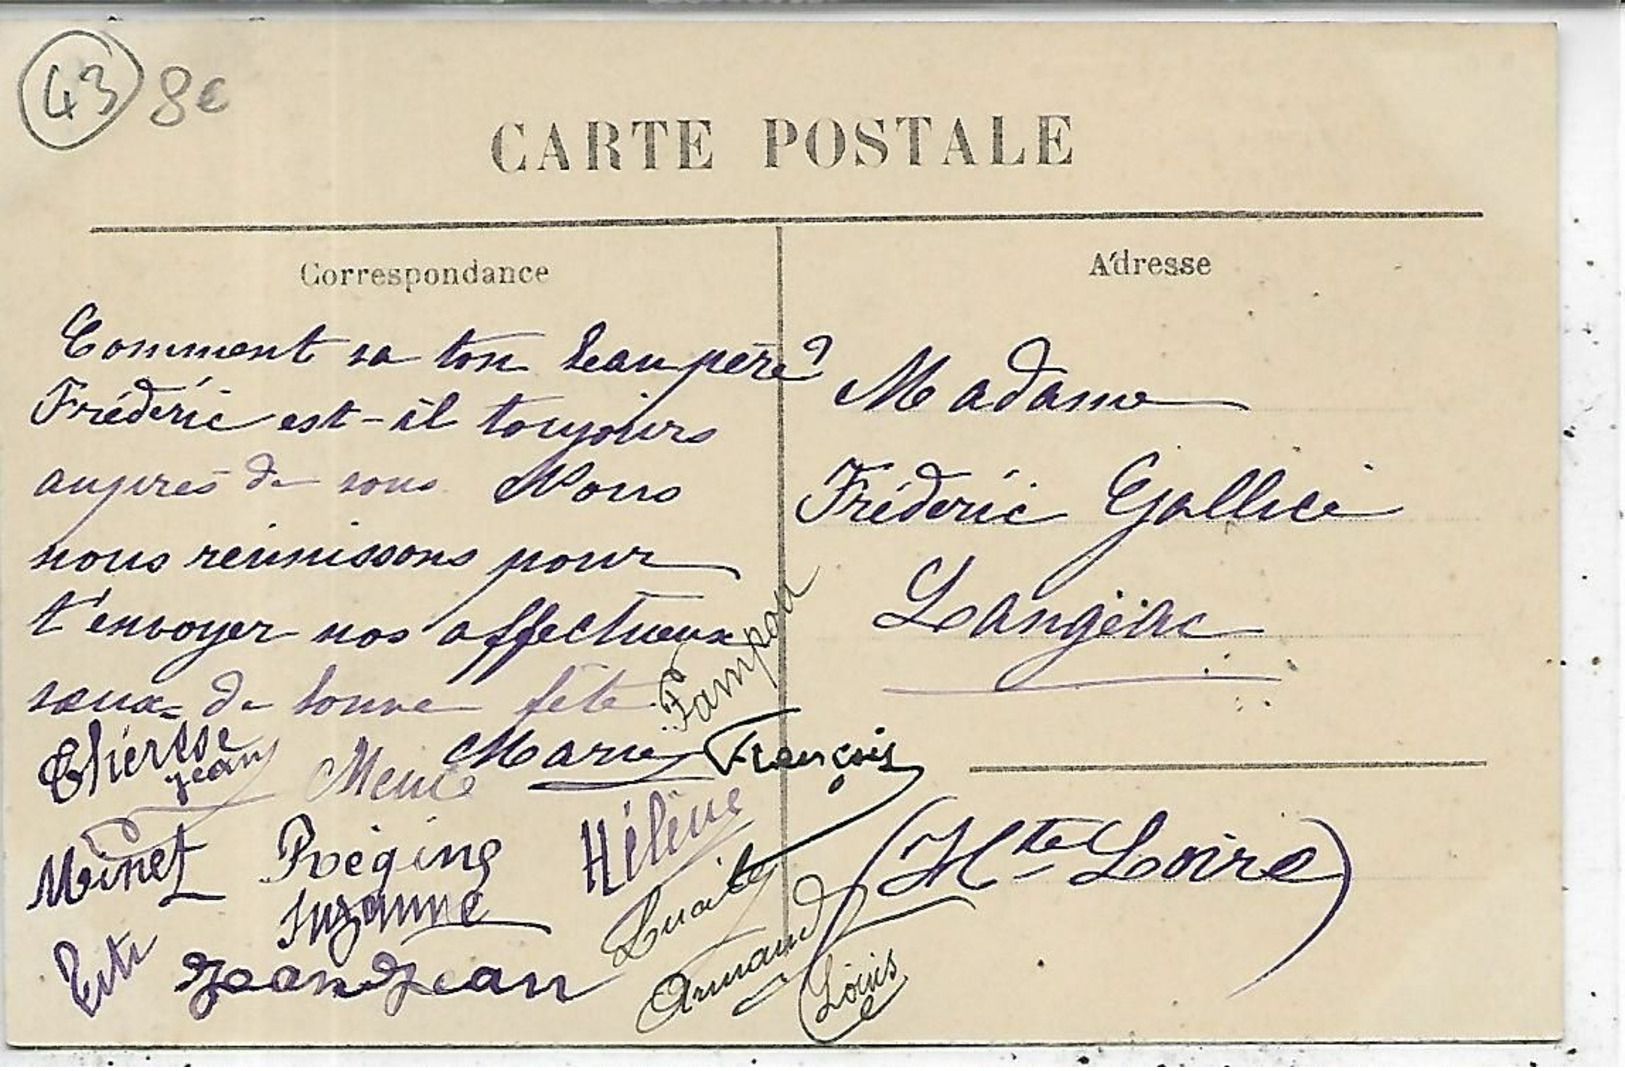 43 8€
CARTE POSTALE
Correspondance
Comment va ton beau père?
Fréderic est-il toujours
auprès de vous Nous
nous réunissons pour
t'envoyer nos affectueux
vœux de bonne fête
Pampou
Thérèse
Jean
Marie
François
Minet
Régine
Suzanne
Hélène
Titi
JeanJean
Armand
Louis
Adresse
Madame
Fréderic Gallice
Langeac
(Hte Loire)